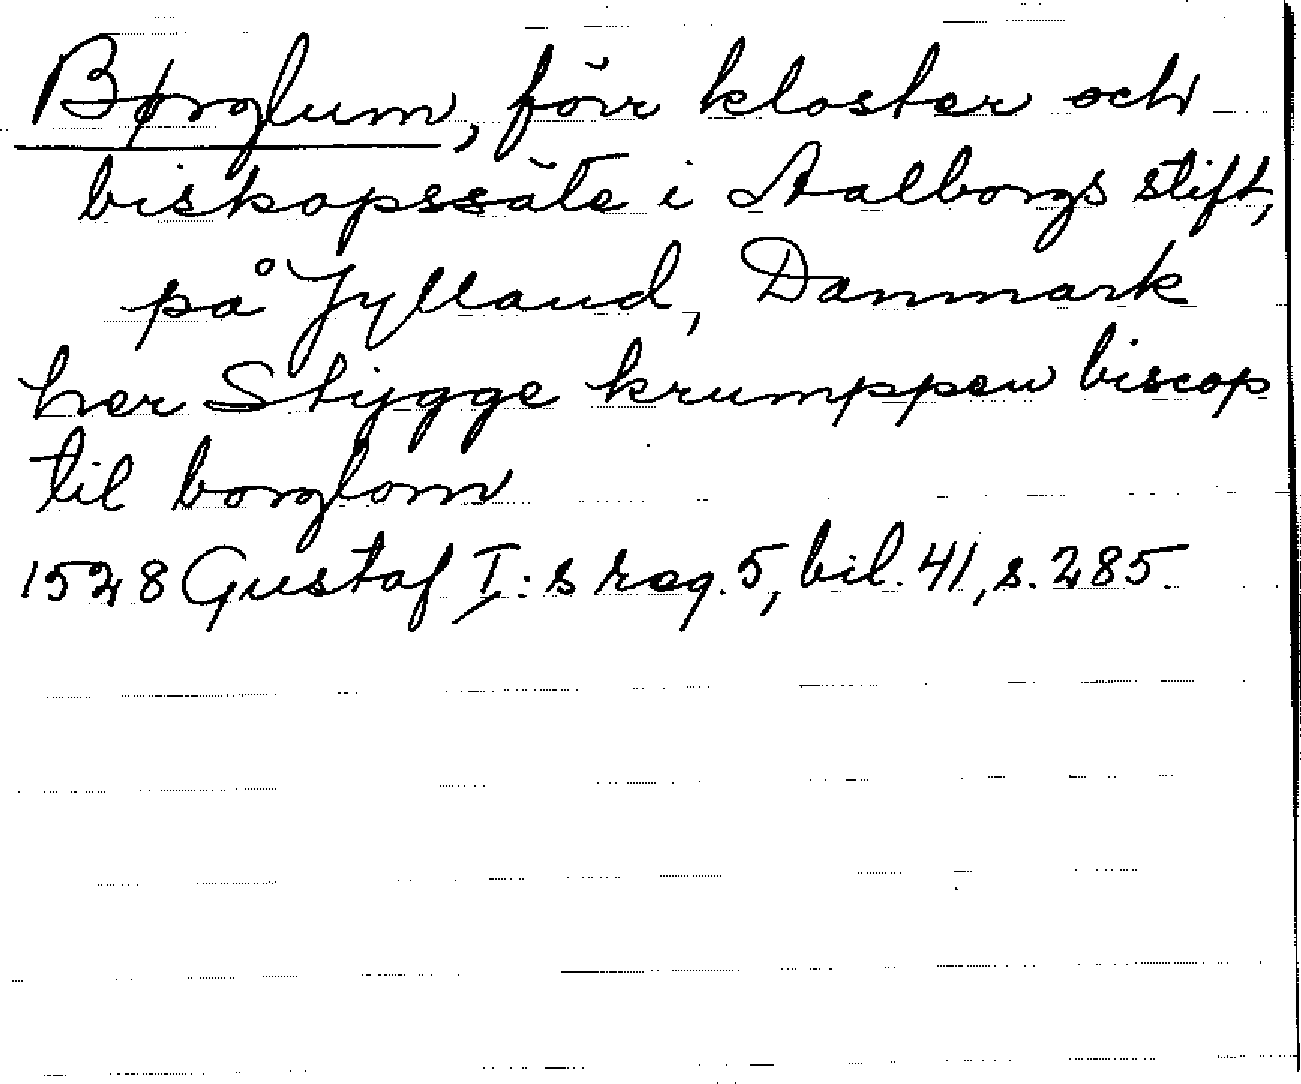 Børglum, förr kloster och
biskopssäte i Aalborgs stift,
på Jylland, Danmark
her Stygge krumppen biscop
til borglom
1528 Gustaf I:s reg. 5, bil. 41, s. 285.